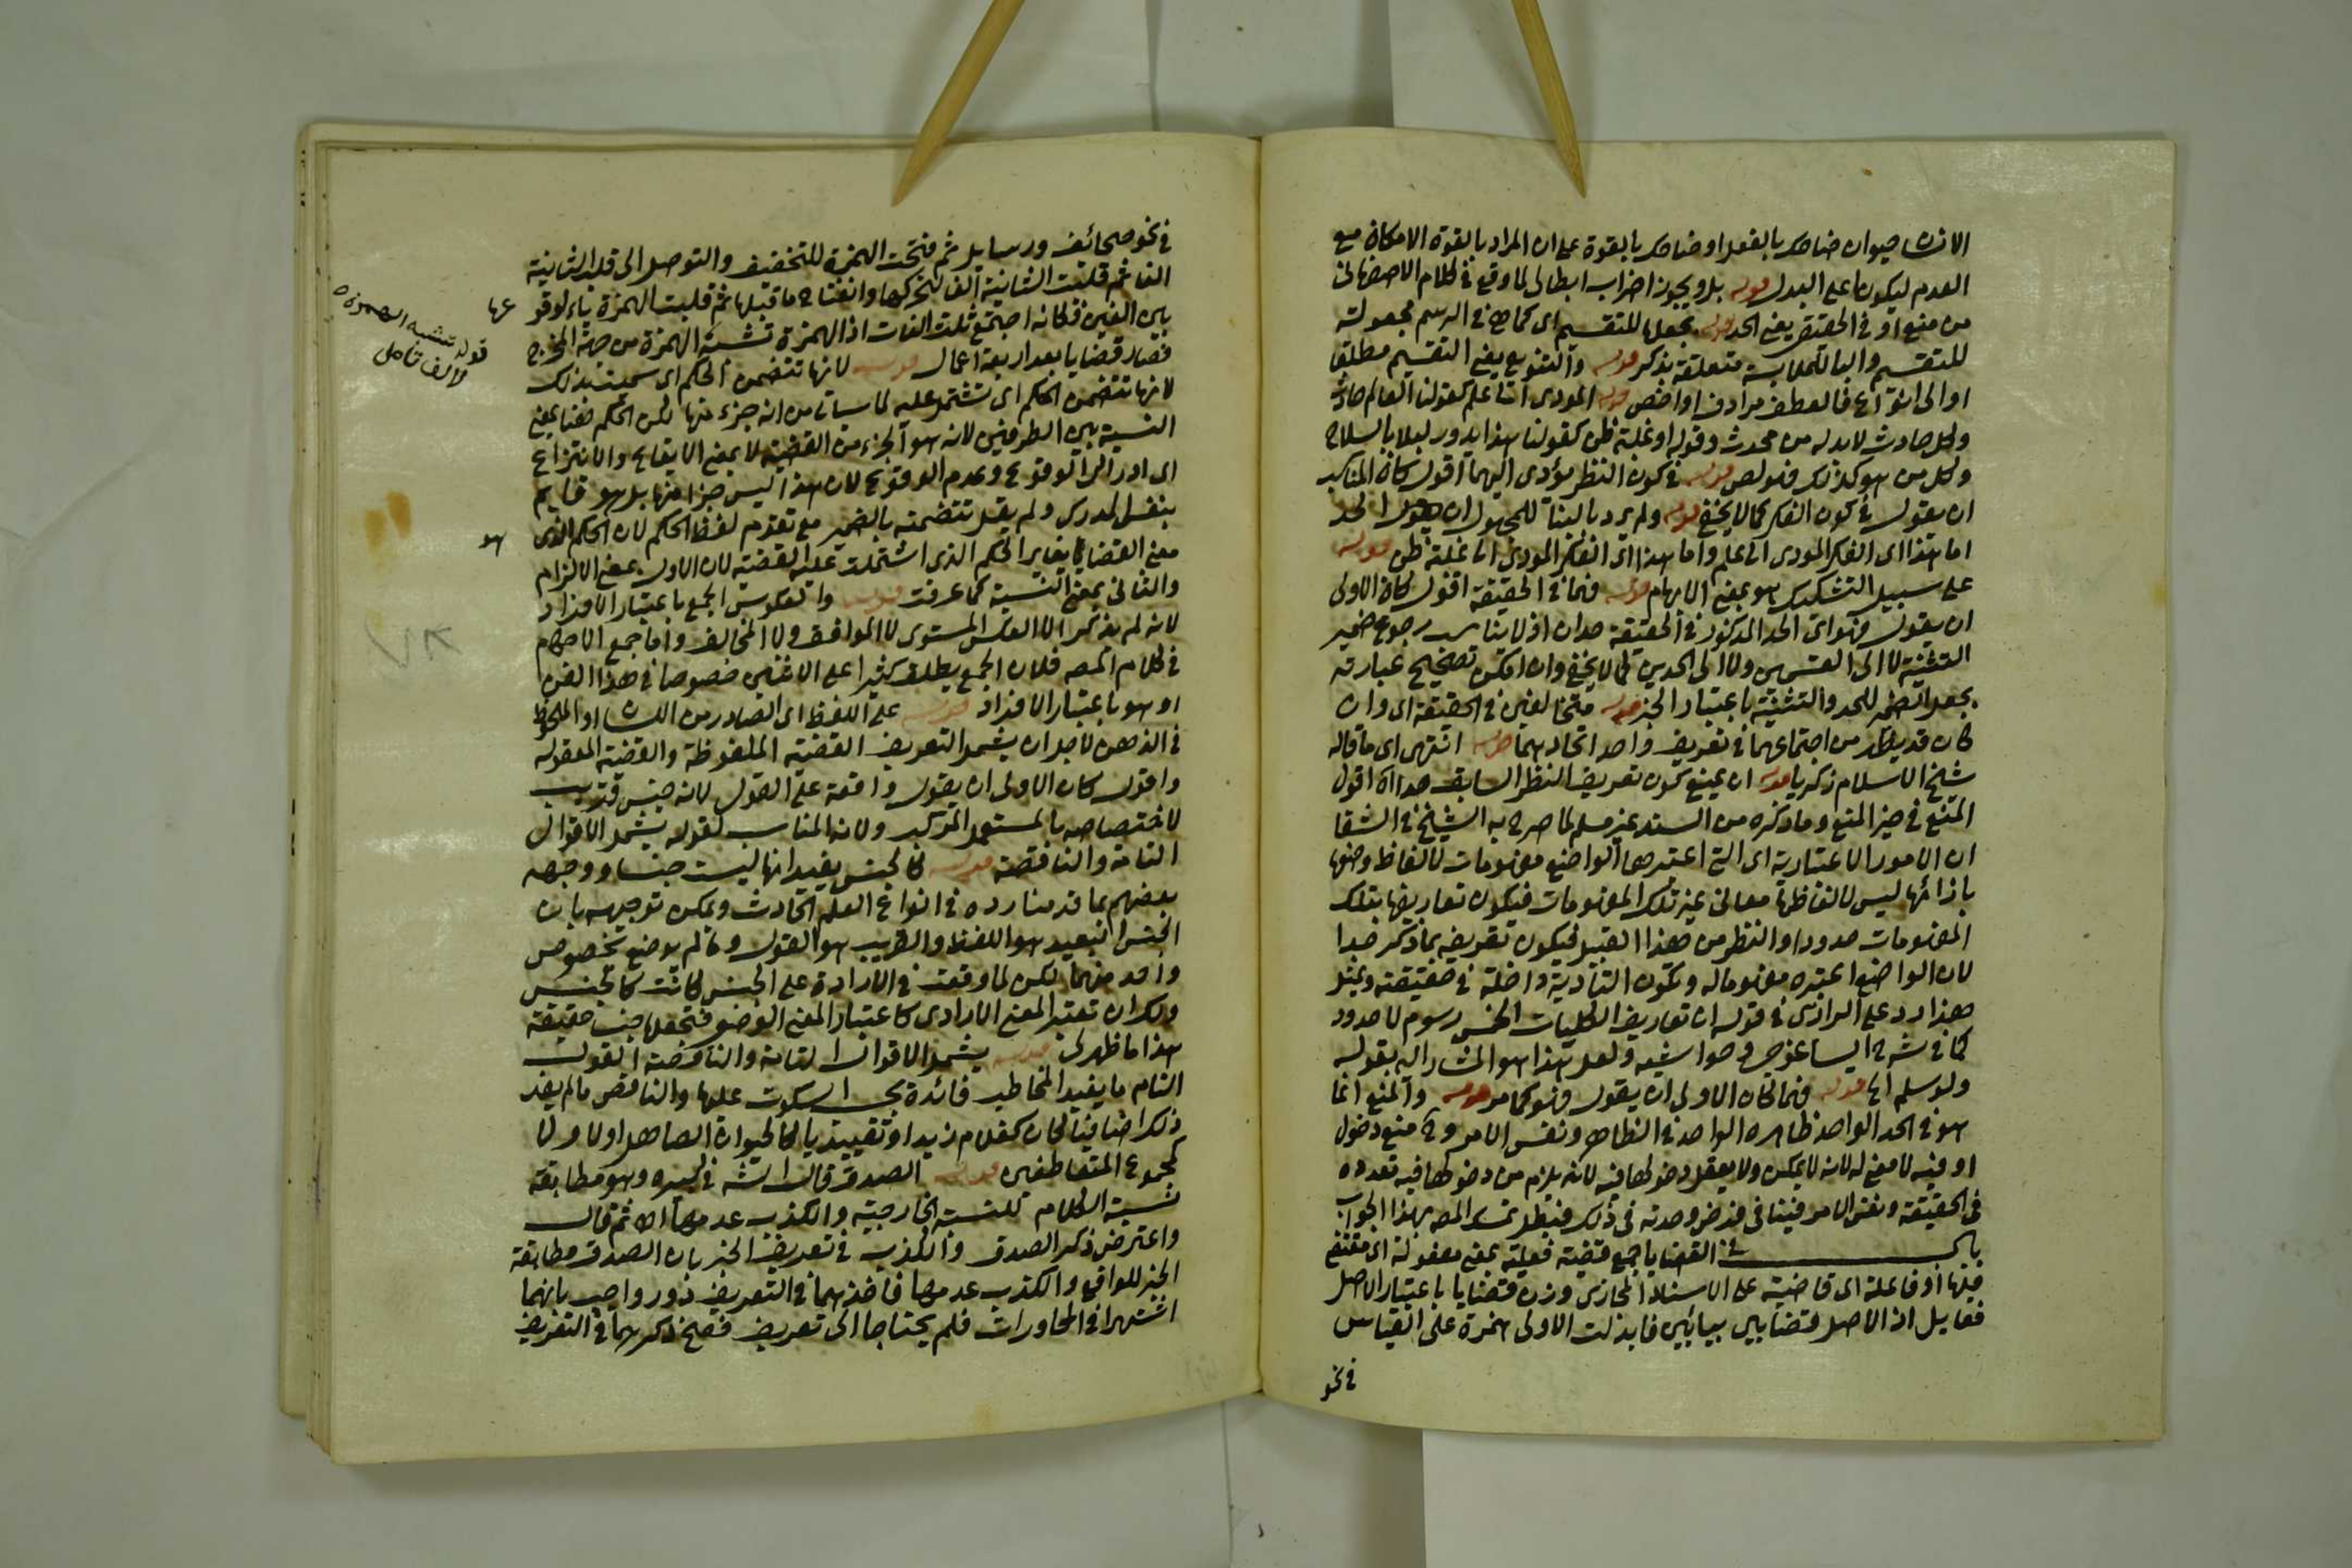 الانسان حيوان ضاحك بالفعل او ضاحك بالقوة على ان المراد بالقوة الامكان مع
العدم ليكونا على البدل قوله بل ويجوز اضراب ابطالى لما وقع فى كلام الاصفهانى
من منع او فى الحقيقى يعنى الحد قوله بجعلها للتقسيم اى كما هى فى الرسم مجعولة
للتقسيم والبا للملابسة متعلقة بذكر قوله والتنويع يعنى التقسيم مطلقا
او الى انواع فالعطف مرادف او اخص قوله المؤدى اما علم كقولنا العالم حادث
وكل حادث لابد له من محدث وقوله او غلبة ظن كقولنا هذا يدور ليلا بالسلاح
وكل من هو كذلك فهو لص قوله فى كون النظر مؤدى اليهما اقول كان المناسب
ان يقول فى كون الفكر كما لا يخفى قوله ولم يرد بالبنا للمجهول ان الحد
اما هذا اى الفكر المودى الى علم واما هذا اى الفكر المودى الى غلبة ظن قوله
على سبيل التشكيك هو بمعنى الابهام قوله فهما فى الحقيقة اقول كان الاولى
ان يقول فهو اى الحد المذكور فى الحقيقة حدان اذ لا يناسب رجوع ضمير
التثنية لا الى القسمين ولا الى الحدين كما لا يخفى وان امكن تصحيح عبارته
بجعل الضمير للحد والتثنية باعتبار الخبر قوله متخالفين فى الحقيقة اى وان
كان قد يظن من اجتماعهما فى تعريف واحد اتحادهما قوله انتهى اى ما قاله
شيخ الاسلام زكريا قوله ان يمنع كون تعريف النظر السابق حدا الخ اقول
المنع فى حيز المنع وما ذكره من السند غير مسلم لما صرح به الشيخ فى الشفا
ان الامور الاعتبارية اى التى اعتبرها الواضع مفهومات لالفاظ وضعها
بازائها ليس لالفاظها معانى غير تلك المفهومات فيكون تعاريفها بتلك
المفهومات حدودا والنظر من هذا القبيل فيكون تعريفه بما ذكر حدا
لان الواضع اعتبره مفهوما له وتكون التأدية داخلة فى حقيقته وبمثل
هذا رد على الرازى فى قوله ان تعاريف الكليات الخمس رسوم لا حدود
كما فى شرح ايساغوجى وحواشيه ولعل هذا هو المشار اليه بقوله
ولو سلم الخ قوله فهما كان الاولى ان يقول فهو كما مر قوله والمنع انما
هو فى الحد الواحد ظاهره الواحد فى الظاهر ونفس الامر وفى منع دخول
او فيه لا معنى له لانه لا يمكن ولا يعقل دخولها فيه لانه يلزم من دخولها فيه تعدده
فى الحقيقة ونفس الامر فينافى فرض وحدته فى ذلك فبطل تمسك المصـ بهذا الجواب
باب فى القضايا جمع قضية فعيلة بمعنى مفعولة اى مقتضى
فيها او فاعلة اى قاضية على الاسناد المجازى وزن قضايا باعتبار الاصل
فعايل اذ الاصل قضايى بيائين فابدلت الاولى همزة على القياس
فى نحو
فى نحو صحائف ورسايل ثم فتحت الهمزة للتخفيف والتوصل الى قلب الثانية
الفا ثم قلبت الثانية الفا لتحركها وانفتاح ما قبلها ثم قلبت الهمزة ياء لوقوعها
بين الفين فكانه اجتمع ثلاث الفات اذ الهمزة تشبه الهمزة من جهة المخرج
فصار قضايا بعد اربعة اعمال قوله لانها تتضمن الحكم اى سميت بذلك
لانها تتضمن الحكم اى تشتمل عليه لما سياتى من انه جزء منها لكن الحكم هنا بمعنى
النسبة بين الطرفين لانه هو الجزء من القضية لا بمعنى الايقاع والانتزاع
اى ادراك الوقوع وعدم الوقوع لان هذا ليس جزا منها بل هو قايم
بنفس المدرك ولم يقل تتضمنه بالضمير مع تقدم لفظ الحكم لان الحكم الذى هو
معنى القضايا يغاير الحكم الذى اشتملت عليه القضية لان الاول بمعنى الالزام
والثانى بمعنى النسبة كما عرفت قوله والعكوس الجمع باعتبار الافراد
لانه لم يذكر الا العكس المستوى لا الموافق ولا المخالف واما جمع الاحكام
فى كلام المصـ فلان الجمع يطلق كثيرا على الاثنين خصوصا فى هذا الفن
او هو باعتبار الافراد قوله على اللفظ اى الصادر من اللسان او الملحوظ
فى الذهن لاجل ان يشمل التعريف القضية الملفوظة والقضية المعقولة
واقول كان الاولى ان يقول واقعة على القول لانه جنس قريب
لاختصاصه بالمستعمل المركب ولانه المناسب لقوله يشمل الاقوال
التامة والناقصة قوله كالجنس يفيد انها ليست جنسا ووجهه
بعضهم بما قدمنا رده فى انواع العلم الحادث ويمكن توجيهه بان
الجنس البعيد هو اللفظ والقريب هو القول وما لم توضع بخصوص
واحد منهما لكن لما وقعت فى الارادة على الجنس كانت كالجنس
ولك ان تعتبر المعنى الارادى كاعتبار المعنى الوضعى فتجعلها جنسا حقيقة
هذا ما ظهر لى قوله يشمل الاقوال التامة والناقصة القول
التام ما يفيد المخاطب فائدة يحسن السكوت عليها والناقص ما لم يفد
ذلك اضافيا كان كغلام زيد او تقييديا كالحيوان الصاهل اولا ولا
كمجموع المتعاطفين قوله الصدق قال الشـ فى كبيره وهو مطابقة
نسبة الكلام للنسبة الخارجية والكذب عدمها الخ ثم قال
واعترض ذكر الصدق والكذب فى تعريف الخبر بان الصدق مطابقة
الخبر للواقع والكذب عدمها فاخذهما فى التعريف دور واجيب بانهما
اشتهرا فى المحاورات فلم يحتاجا الى تعريف فصح ذكرهما فى التعريف
قوله تشبه الهمزة
لالف تامل